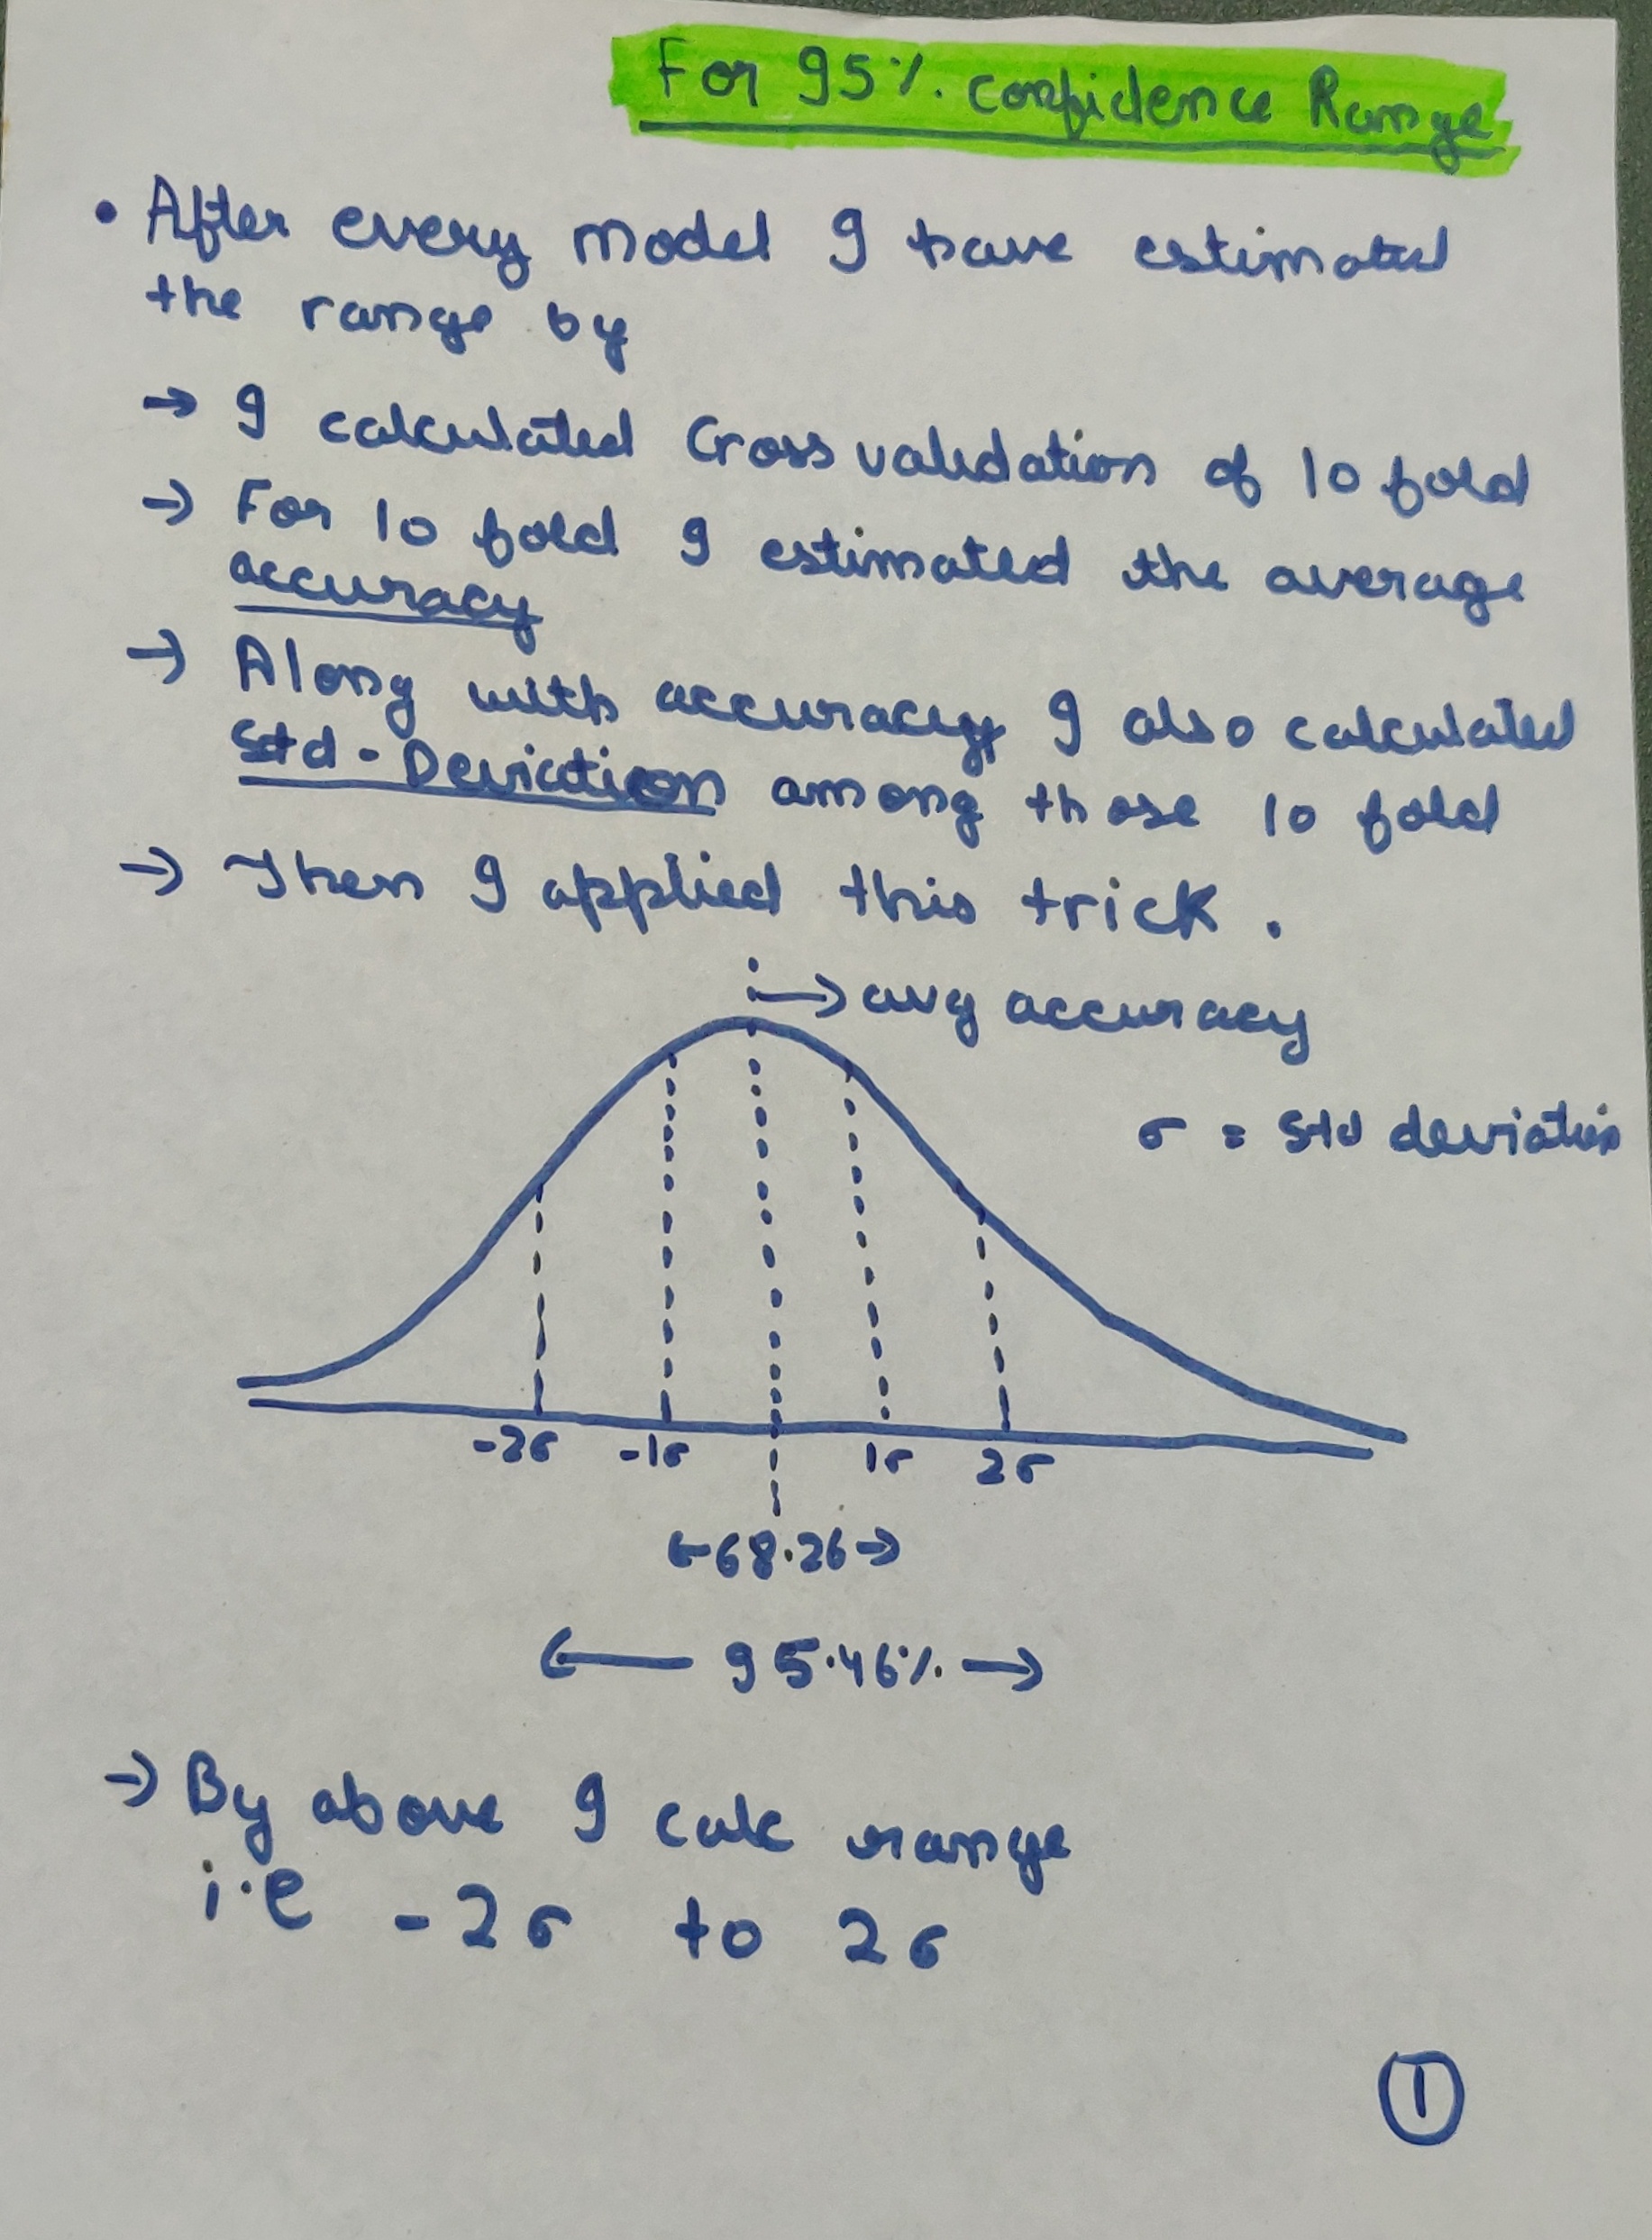 For 95%. confidence Range
• After every model I have estimated
the range by
→ I calculated Cross validation of 10 fold
→ For 10 fold I estimated the average
accuracy
→ Along with accuracy, I also calculated
Std-Deviation among those 10 fold
→ Then I applied this trick.
→ avg accuracy
σ = Std deviation
-2σ -1σ 1σ 2σ
←68.26→
← 95.46%. →
→ By above I calc range
i.e -2σ to 2σ
1